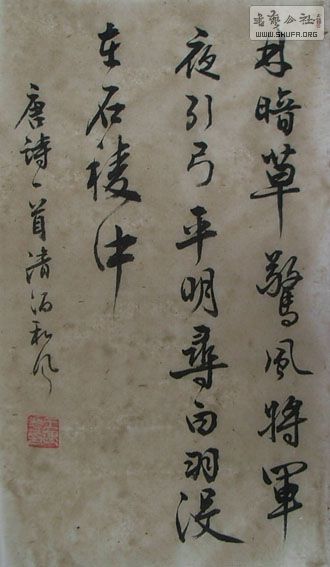 林暗草驚風將軍
夜引弓平明尋白羽沒
在石稜中
唐詩一首清泊和風
書藝公社
WWW.SHUFA.ORG